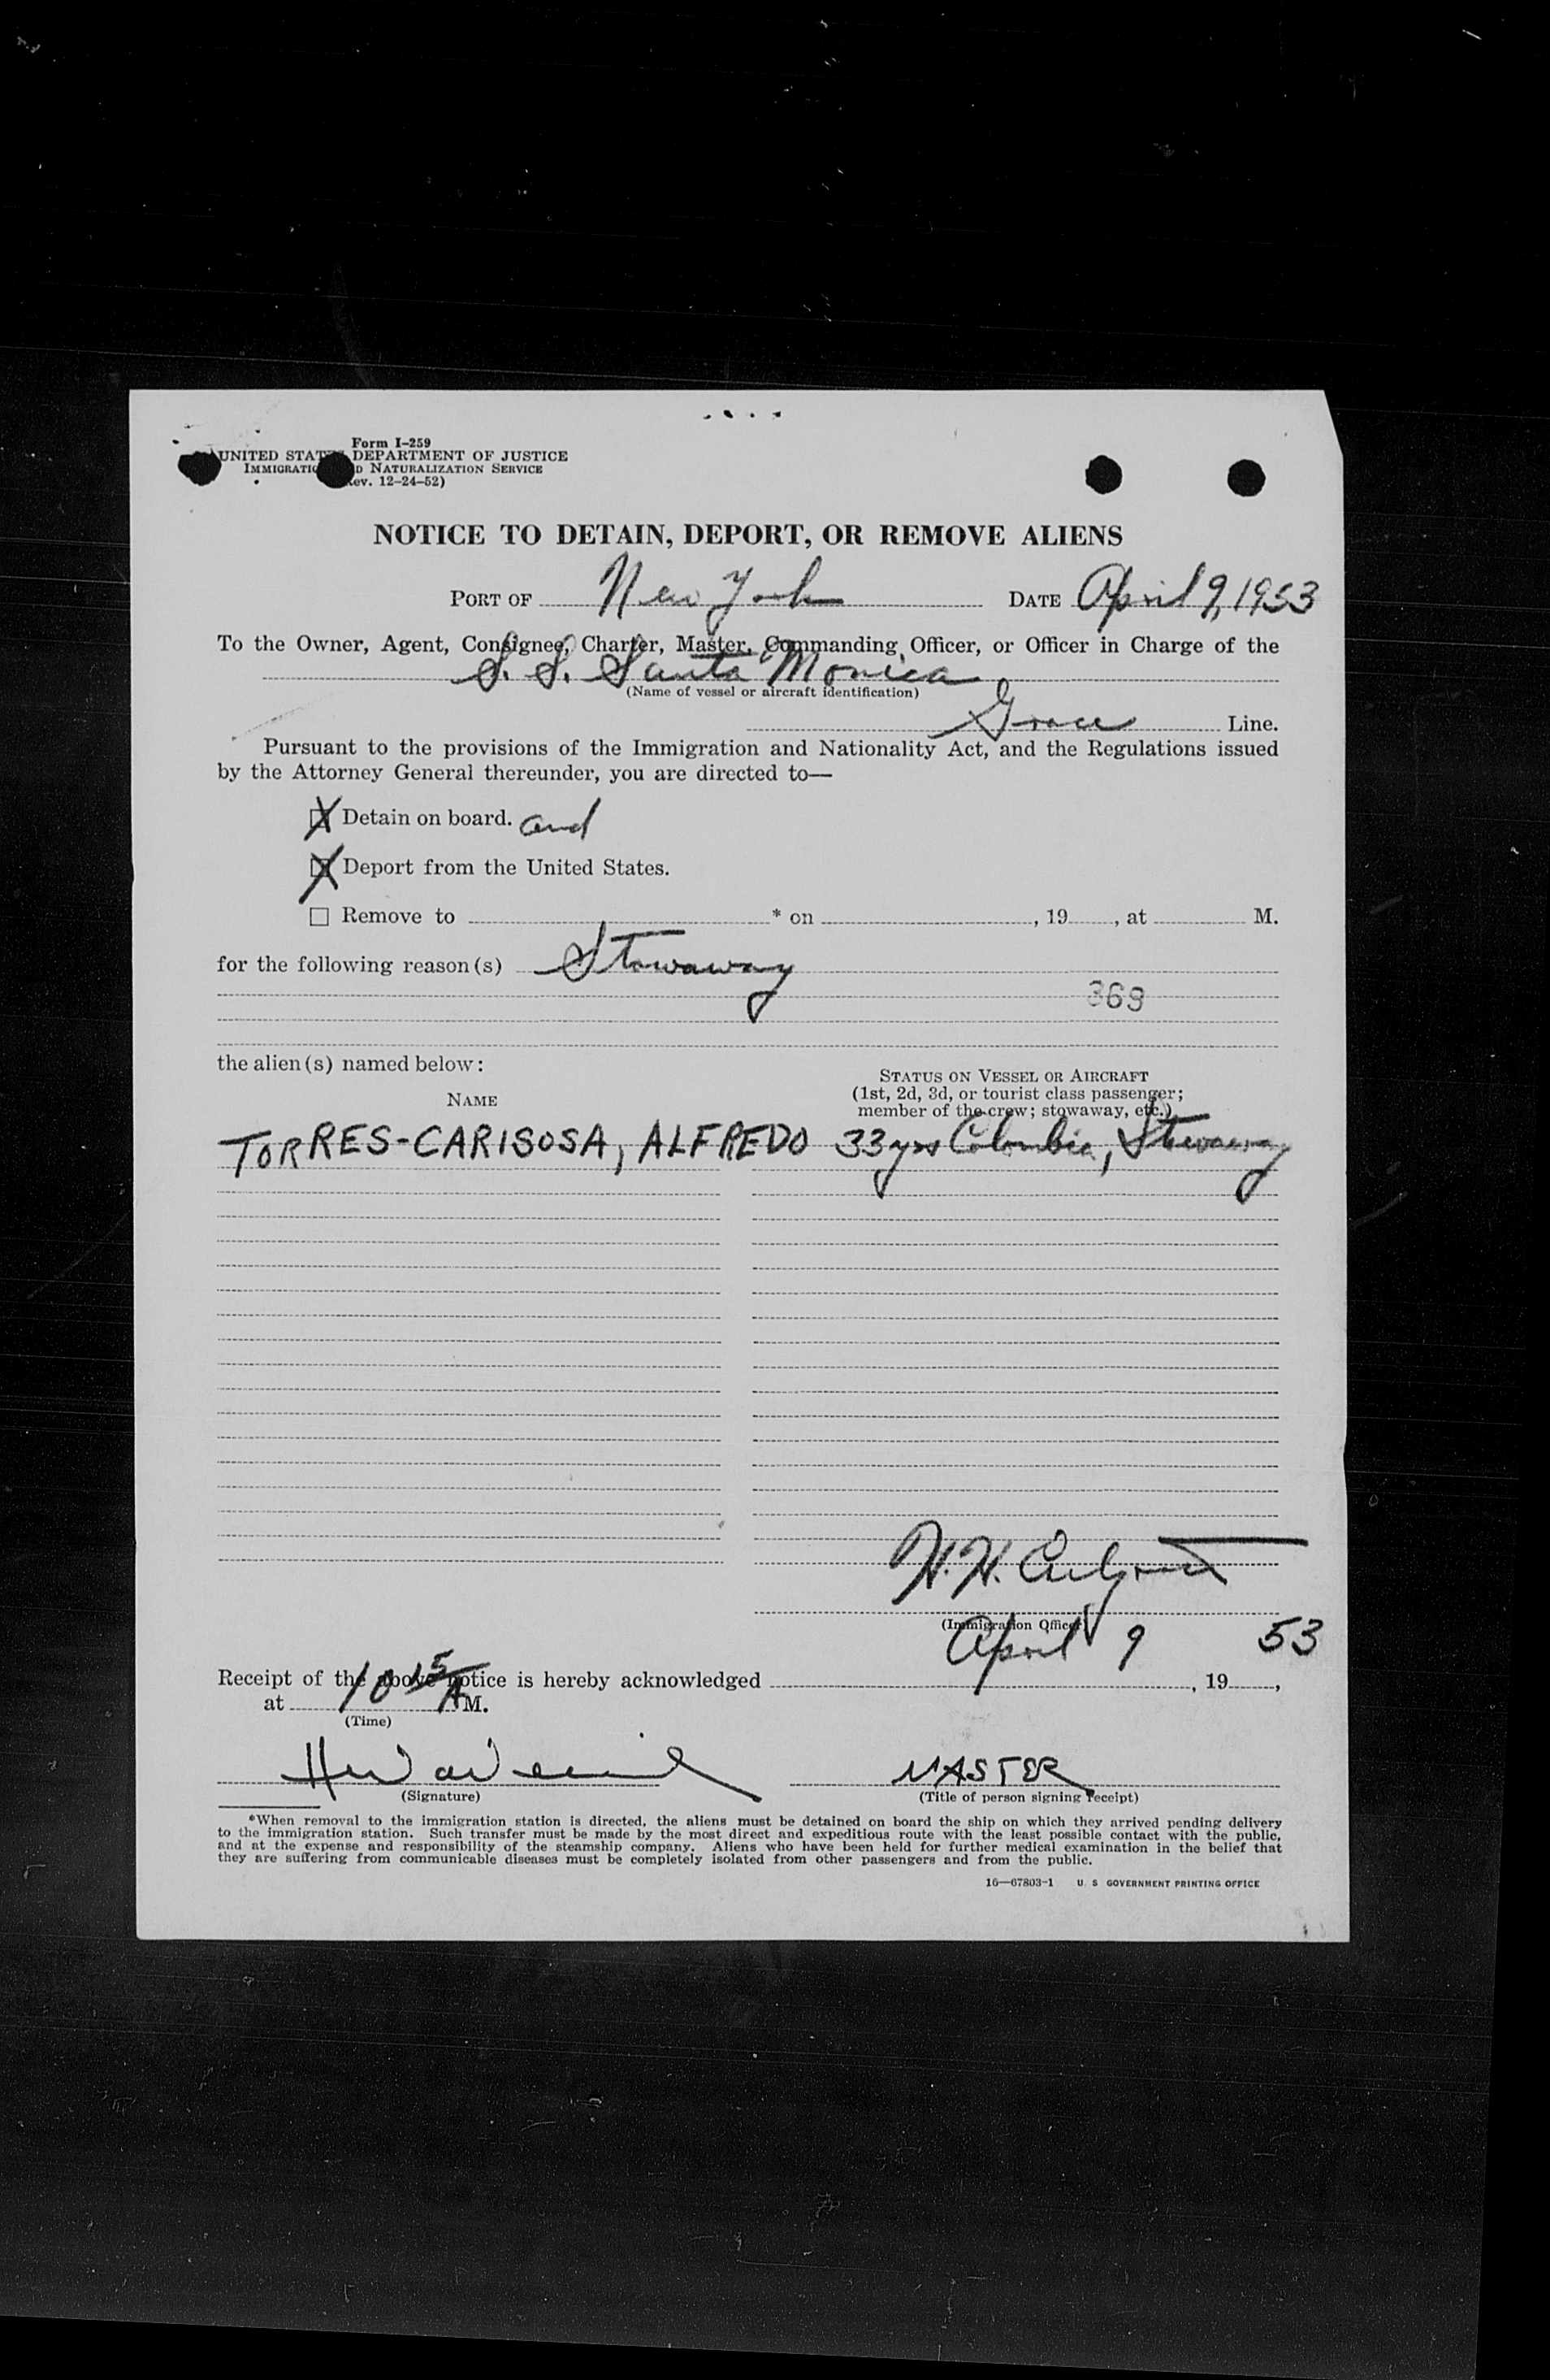 Form I-259
UNITED STATES DEPARTMENT OF JUSTICE
IMMIGRATION AND NATURALIZATION SERVICE
(Rev. 12-24-52)
NOTICE TO DETAIN, DEPORT, OR REMOVE ALIENS
PORT OF New York DATE April 9, 1953
To the Owner, Agent, Consignee, Charter, Master, Commanding Officer, or Officer in Charge of the
S. S. Santa Monica
(Name of vessel or aircraft identification)
Grace Line.
Pursuant to the provisions of the Immigration and Nationality Act, and the Regulations issued
by the Attorney General thereunder, you are directed to—
X Detain on board. and
X Deport from the United States.
☐ Remove to * on , 19 , at M.
for the following reason(s) Stowaway
369
the alien(s) named below:
STATUS ON VESSEL OR AIRCRAFT
(1st, 2d, 3d, or tourist class passenger;
member of the crew; stowaway, etc.)
NAME
TORRES-CARISOSA, ALFREDO 33 yrs Colombia, Stowaway
H. H.
(Immigration Officer)
April 9 53
Receipt of the above notice is hereby acknowledged , 19 ,
at 10 15 A M.
(Time)
MASTER
(Signature) (Title of person signing receipt)
*When removal to the immigration station is directed, the aliens must be detained on board the ship on which they arrived pending delivery
to the immigration station. Such transfer must be made by the most direct and expeditious route with the least possible contact with the public,
and at the expense and responsibility of the steamship company. Aliens who have been held for further medical examination in the belief that
they are suffering from communicable diseases must be completely isolated from other passengers and from the public.
16—67803-1 U. S. GOVERNMENT PRINTING OFFICE